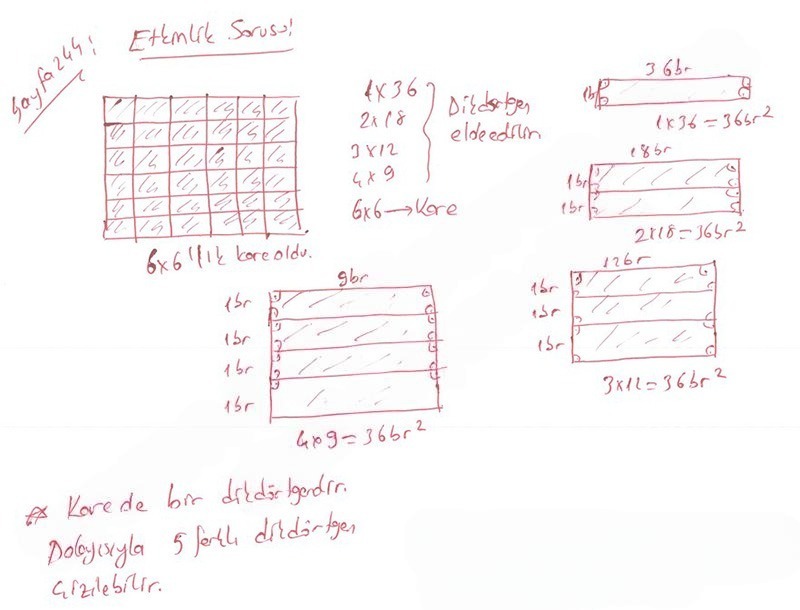 Sayfa 244:
Etkinlik Sorusu!
1x36
2x18
3x12
4x9
6x6 → Kare
Dikdörtgen
elde edilir
6x6'lık kare oldu.
36br
1br
1x36 = 36br²
18br
1br
1br
2x18 = 36br²
12br
1br
1br
1br
3x12 = 36br²
9br
1br
1br
1br
1br
4x9 = 36br²
Kare de bir dikdörtgendir.
Dolayısıyla 5 farklı dikdörtgen
çizilebilir.